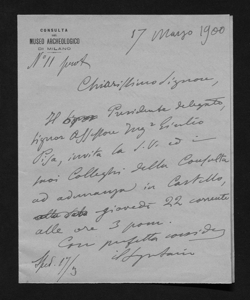 CONSULTA
DEL
MUSEO ARCHEOLOGICO
DI MILANO
17 Marzo 1900
Nº 11 prot
Chiarissimo Signore,
Il Presidente delegato,
Signor Assessore Ingʳ Giulio
Pisa, invita la S.V. ed i
suoi Colleghi della Consulta
ad adunanza in Castello,
giovedì 22 corrente
alle ore 3 pom.
Con perfetta
Sped. 17/3